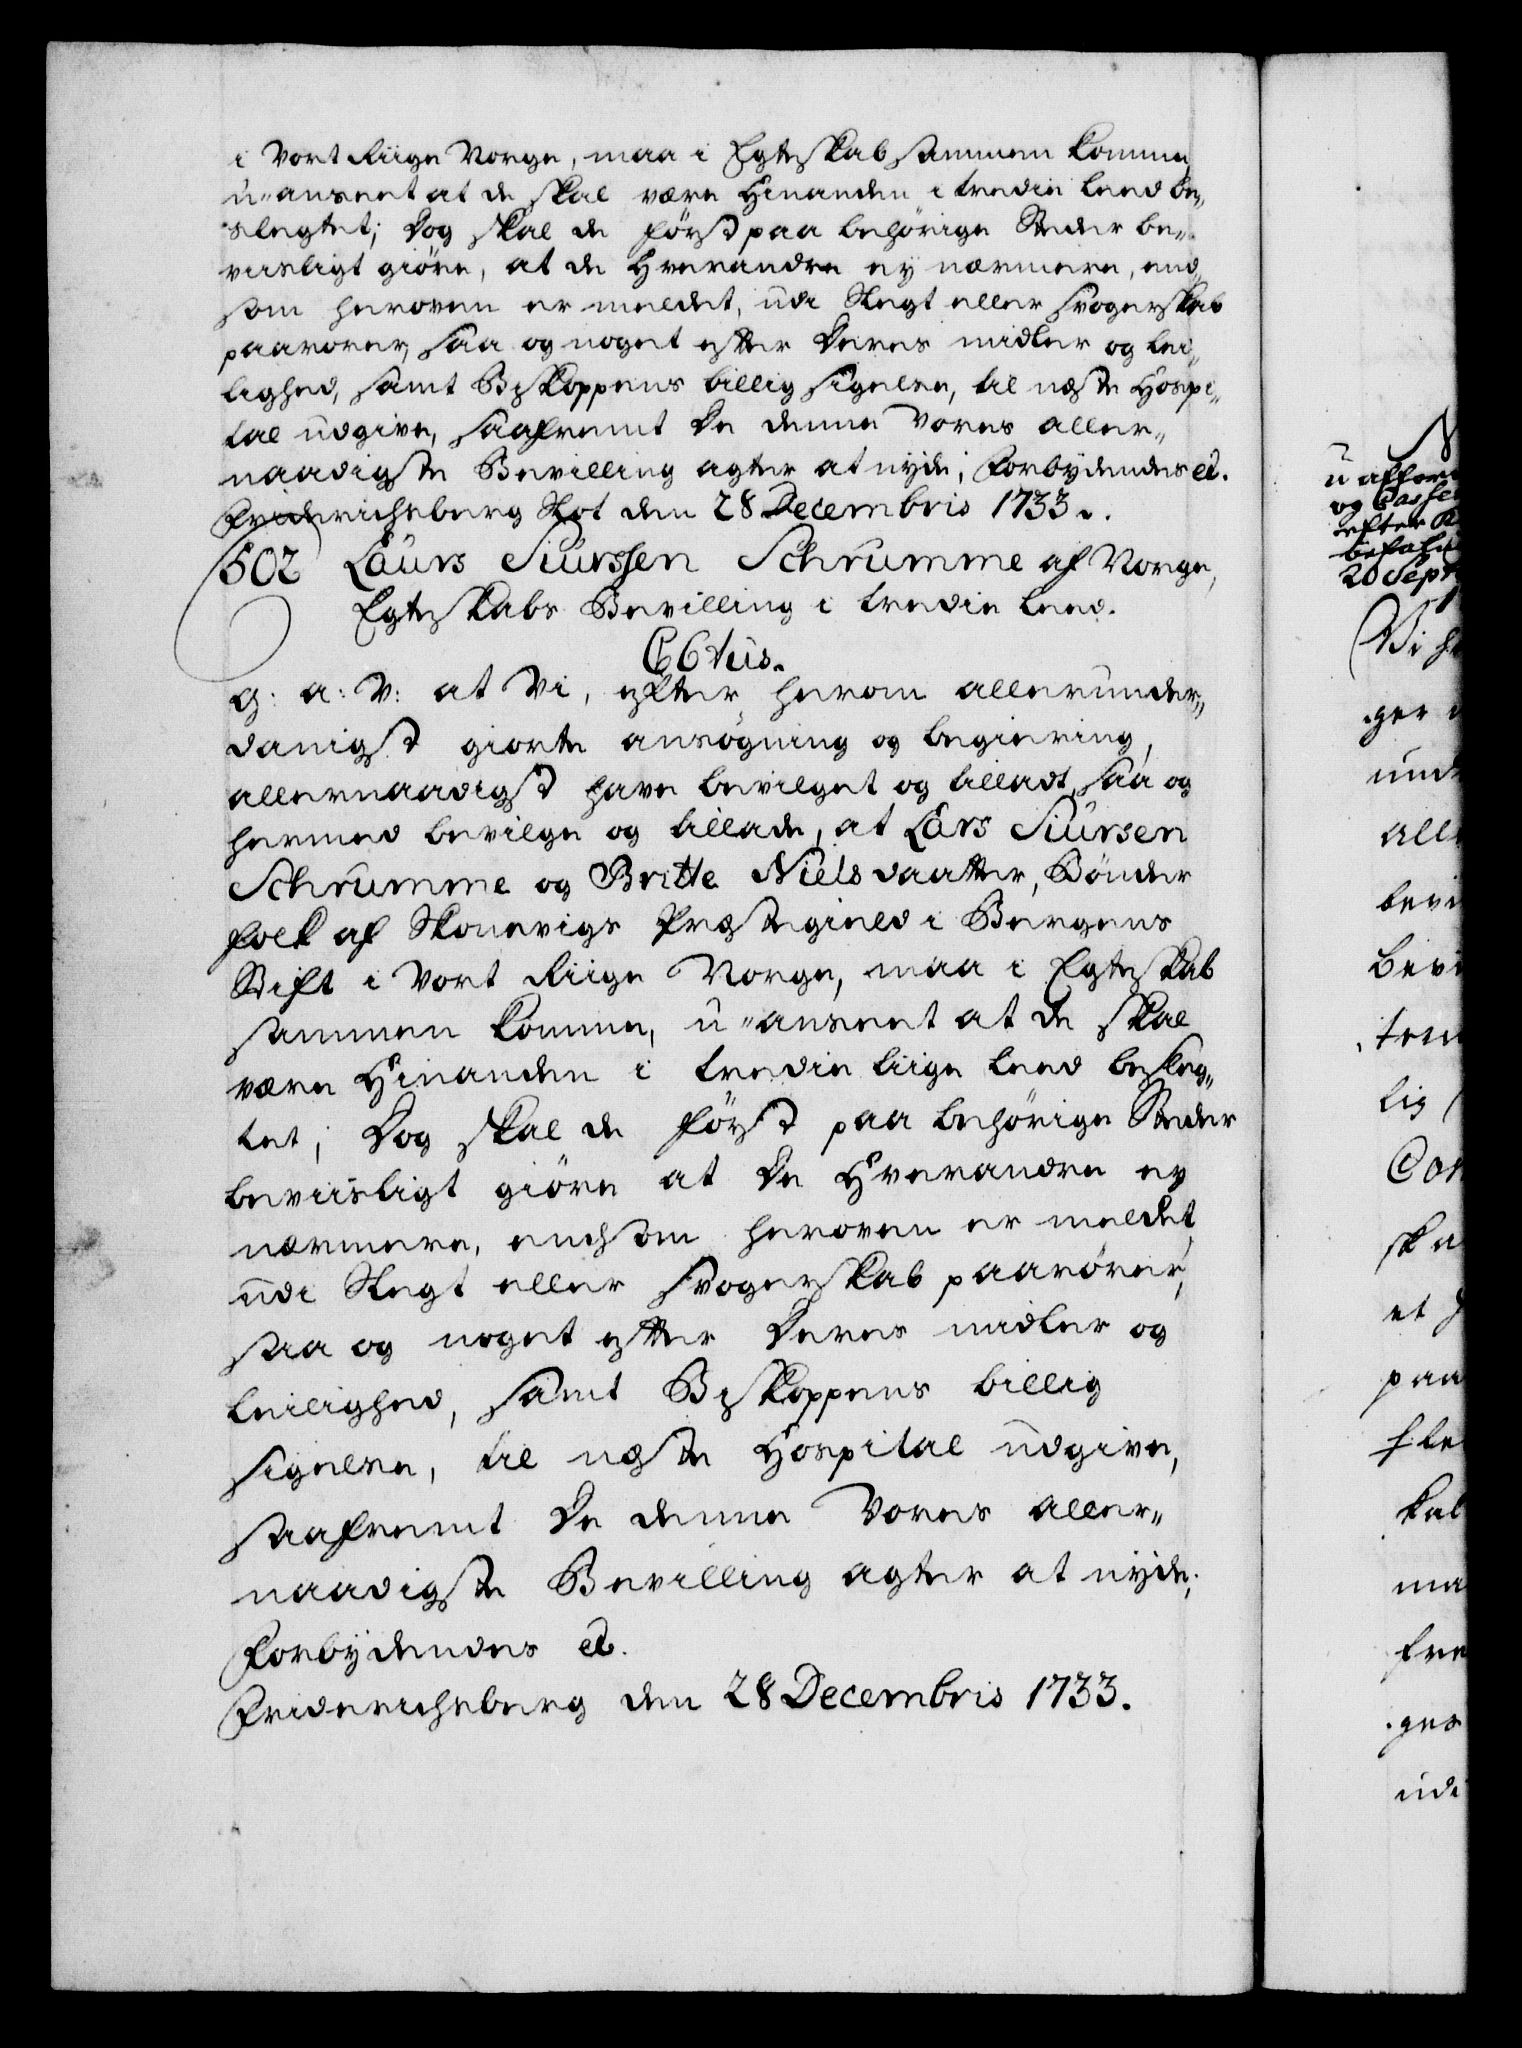 i Vort Riige Norge, maa i Egteskab sammen komme
u-anseet at de skal være Hinanden i tredie leed be-
slegtet; Dog skal de först paa behörige Steder be-
viisligt giöre, at de Hverandre ey nærmere, end
som heroven er meldet, udi Slegt eller Svogerskab
paarörer, saa og noget efter Deres midler og lei-
lighed, samt Biskoppens billig sigelse, til næste Hospi-
tal udgive, saafremt De denne Vores aller-
naadigste Bevilling agter at nyde; Forbydendes etc.
Fridericksberg Slot den 28 Decembris 1733.
502 Laurs Siurssen Schrumme af Norge,
Egteskabs Bevilling i tredie leed.
C6tus.
G: A: V: at Vi, efter herom allerunder-
danigst giorte ansögning og begiering,
allernaadigst have bevilget og tilladt, saa og
hermed bevilge og tillade, at Lars Siursen
Schrumme og Britte Nielsdaatter, Bönder
folk af Skonevigs Præstegield i Bergens
Stift i Vort Riige Norge, maa i Egteskab
sammen komme, u-anseet at de skal
være Hinanden i tredie liige leed besleg-
tet; Dog skal de först paa behörige Steder
beviisligt giöre at De Hverandre ey
nærmere, end som heroven er meldet,
udi Slegt eller Svogerskab paarörer,
saa og noget efter Deres midler og
leilighed, samt Biskoppens billig
sigelse, til næste Hospital udgive,
saafremt De denne Vores aller-
naadigste Bevilling agter at nyde;
Forbydendes etc.
Fridericksberg den 28 Decembris 1733.
og
efter
20 Sept
Vi
ger
und
all
bevi
Bevi
ten
lig
Con
ska
et
paa
kal
maa
fre
ges
udi